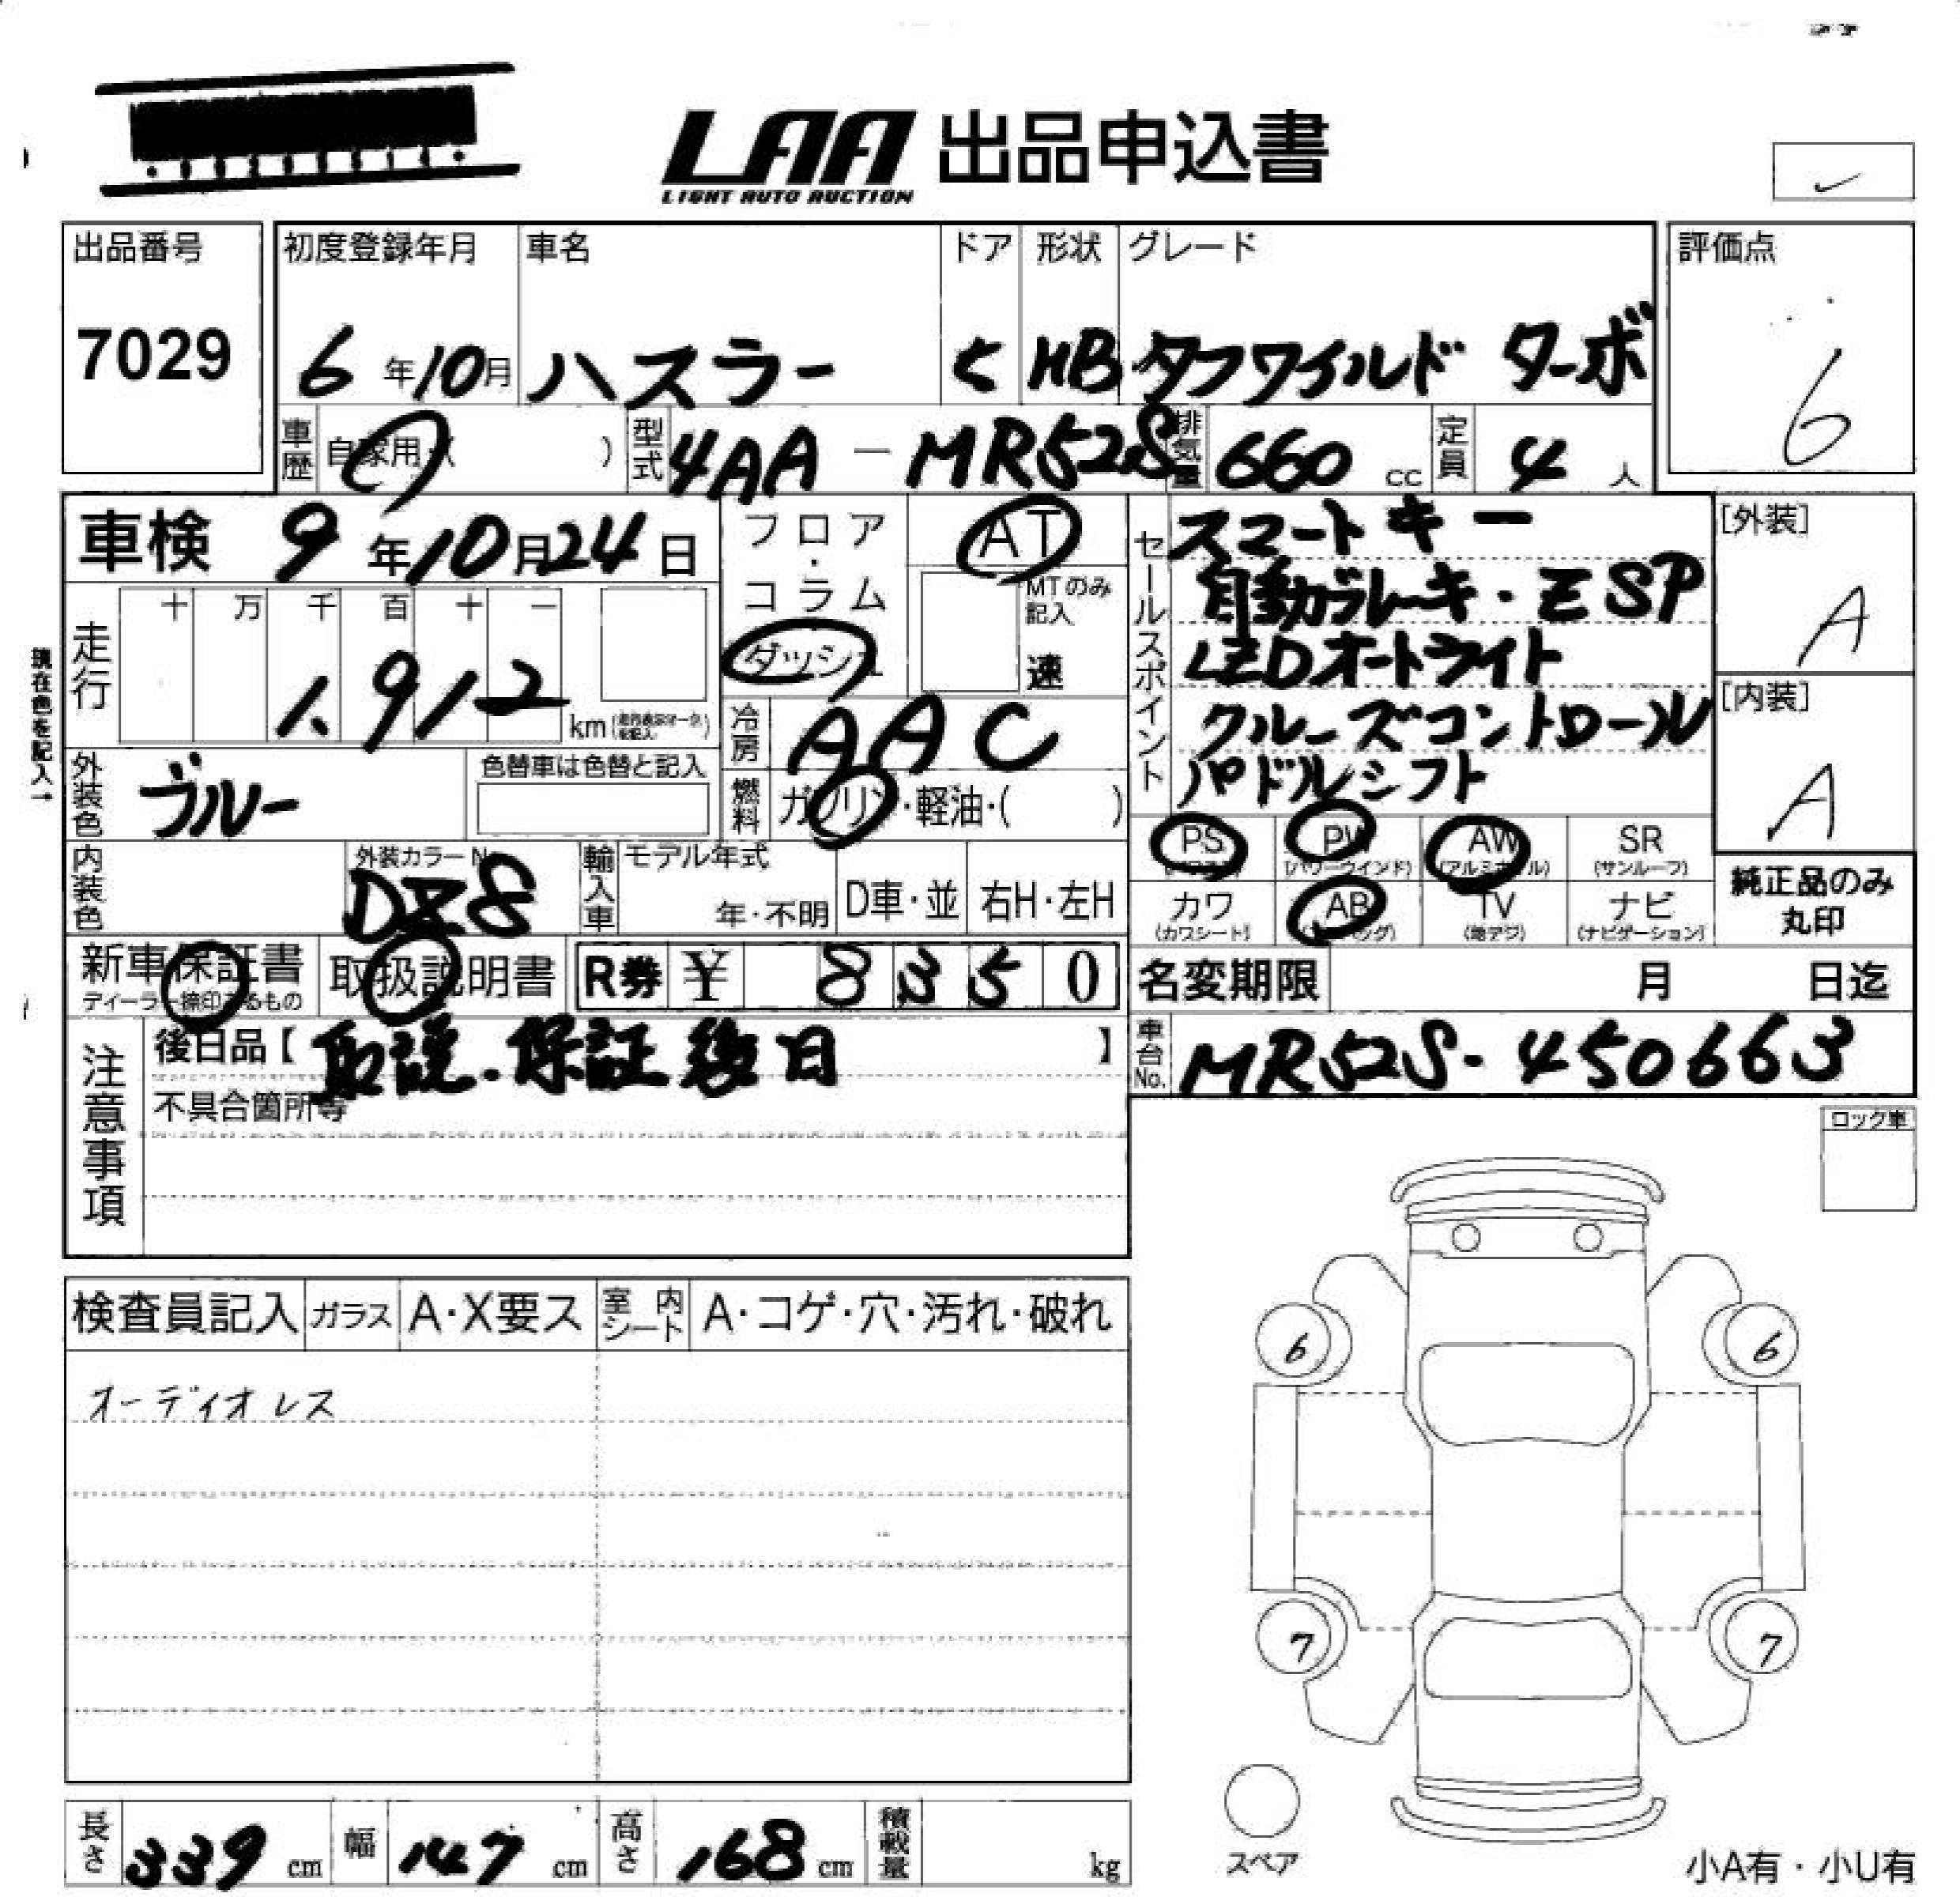 LAA 出品申込書
LIGHT AUTO AUCTION
出品番号 初度登録年月 車名 ドア 形状 グレード 評価点
7029 6年10月 ハスラー 5 HB タフワイルド ターボ 6
車歴 自家用・( ) 型式 4AA-MR52S 排気量 660 cc 定員 4 人
車検 9年10月24日 フロア・コラム ダッシュ AT MTのみ記入 速
セールスポイント
スマートキー
自動ブレーキ・ESP
LEDオートライト
クルーズコントロール
パドルシフト
[外装] A
[内装] A
現在色を記入→
走行 十 万 千 百 十 一
1,912 km
冷房 AAC
外装色 ブルー 色替車は色替と記入
燃料 ガソリン・軽油・( )
PS PW (パワーウインド) AW (アルミホイル) SR (サンルーフ)
カワ (カワシート) AB (エアバッグ) TV (地デジ) ナビ (ナビゲーション)
純正品のみ丸印
内装色 外装カラーNo. DZ8 輸入車 モデル年式 年・不明 D車・並 右H・左H
新車保証書 ディーラー捺印あるもの 取扱説明書 R券 ¥ 8350 名変期限 月 日迄
注意事項 後日品【取説.保証後日】
車台No. MR52S-450663
不具合箇所等
ロック車
検査員記入 ガラス A・X要ス 室内シート A・コゲ・穴・汚れ・破れ
オーディオレス
6 6
7 7
スペア
長さ 339 cm 幅 147 cm 高さ 168 cm 積載量 kg
小A有・小U有